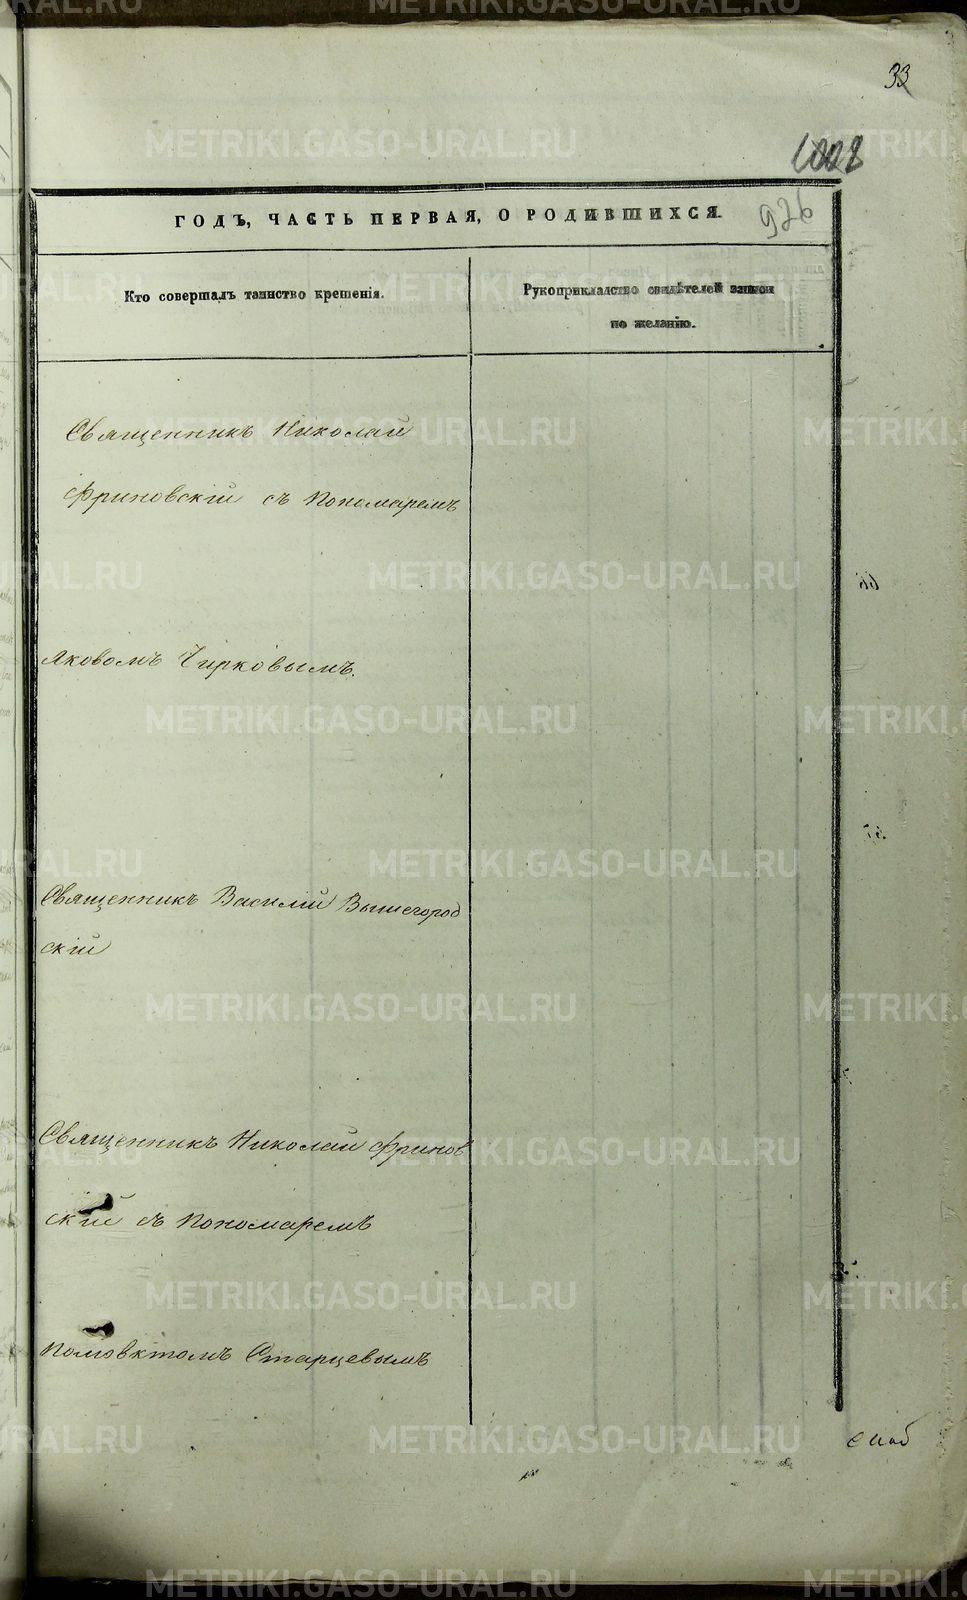 33
926
ГОДЪ, ЧАСТЬ ПЕРВАЯ, О РОДИВШИХСЯ.
Кто совершалъ таинство крещенія.
Рукоприкладство свидѣтелей записи
по желанію.
Священникъ Николай
Фриновскій съ Пономаремъ
Яковомъ Чирковымъ.
Священникъ Василій Вышегород
скій
Священникъ Николай Фринов
скій съ Пономаремъ
Старцевымъ
METRIKI.GASO-URAL.RU